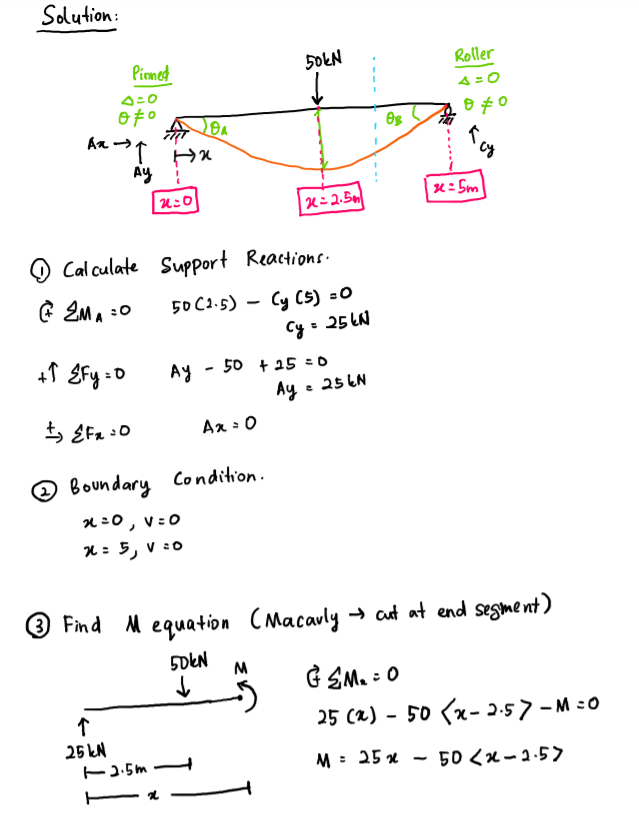 Solution:
50kN
Pinned
Δ=0
θ≠0
Roller
Δ=0
θ≠0
θA
θB
Ax →
Ay
Cy
x
x=0
x=2.5m
x=5m
① Calculate Support Reactions.
↻+ ΣMA=0 50(2.5) − Cy(5) =0
Cy = 25kN
+↑ ΣFy=0 Ay − 50 + 25 = 0
Ay = 25kN
+→ ΣFx=0 Ax = 0
② Boundary Condition.
x=0, v=0
x = 5, v=0
③ Find M equation (Macauly → cut at end segment)
50kN
M
25kN
2.5m
x
↻+ ΣMx=0
25(x) − 50 <x−2.5> −M=0
M = 25x − 50<x−2.5>